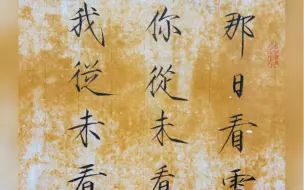 那日看雪
你從未看
我從未看